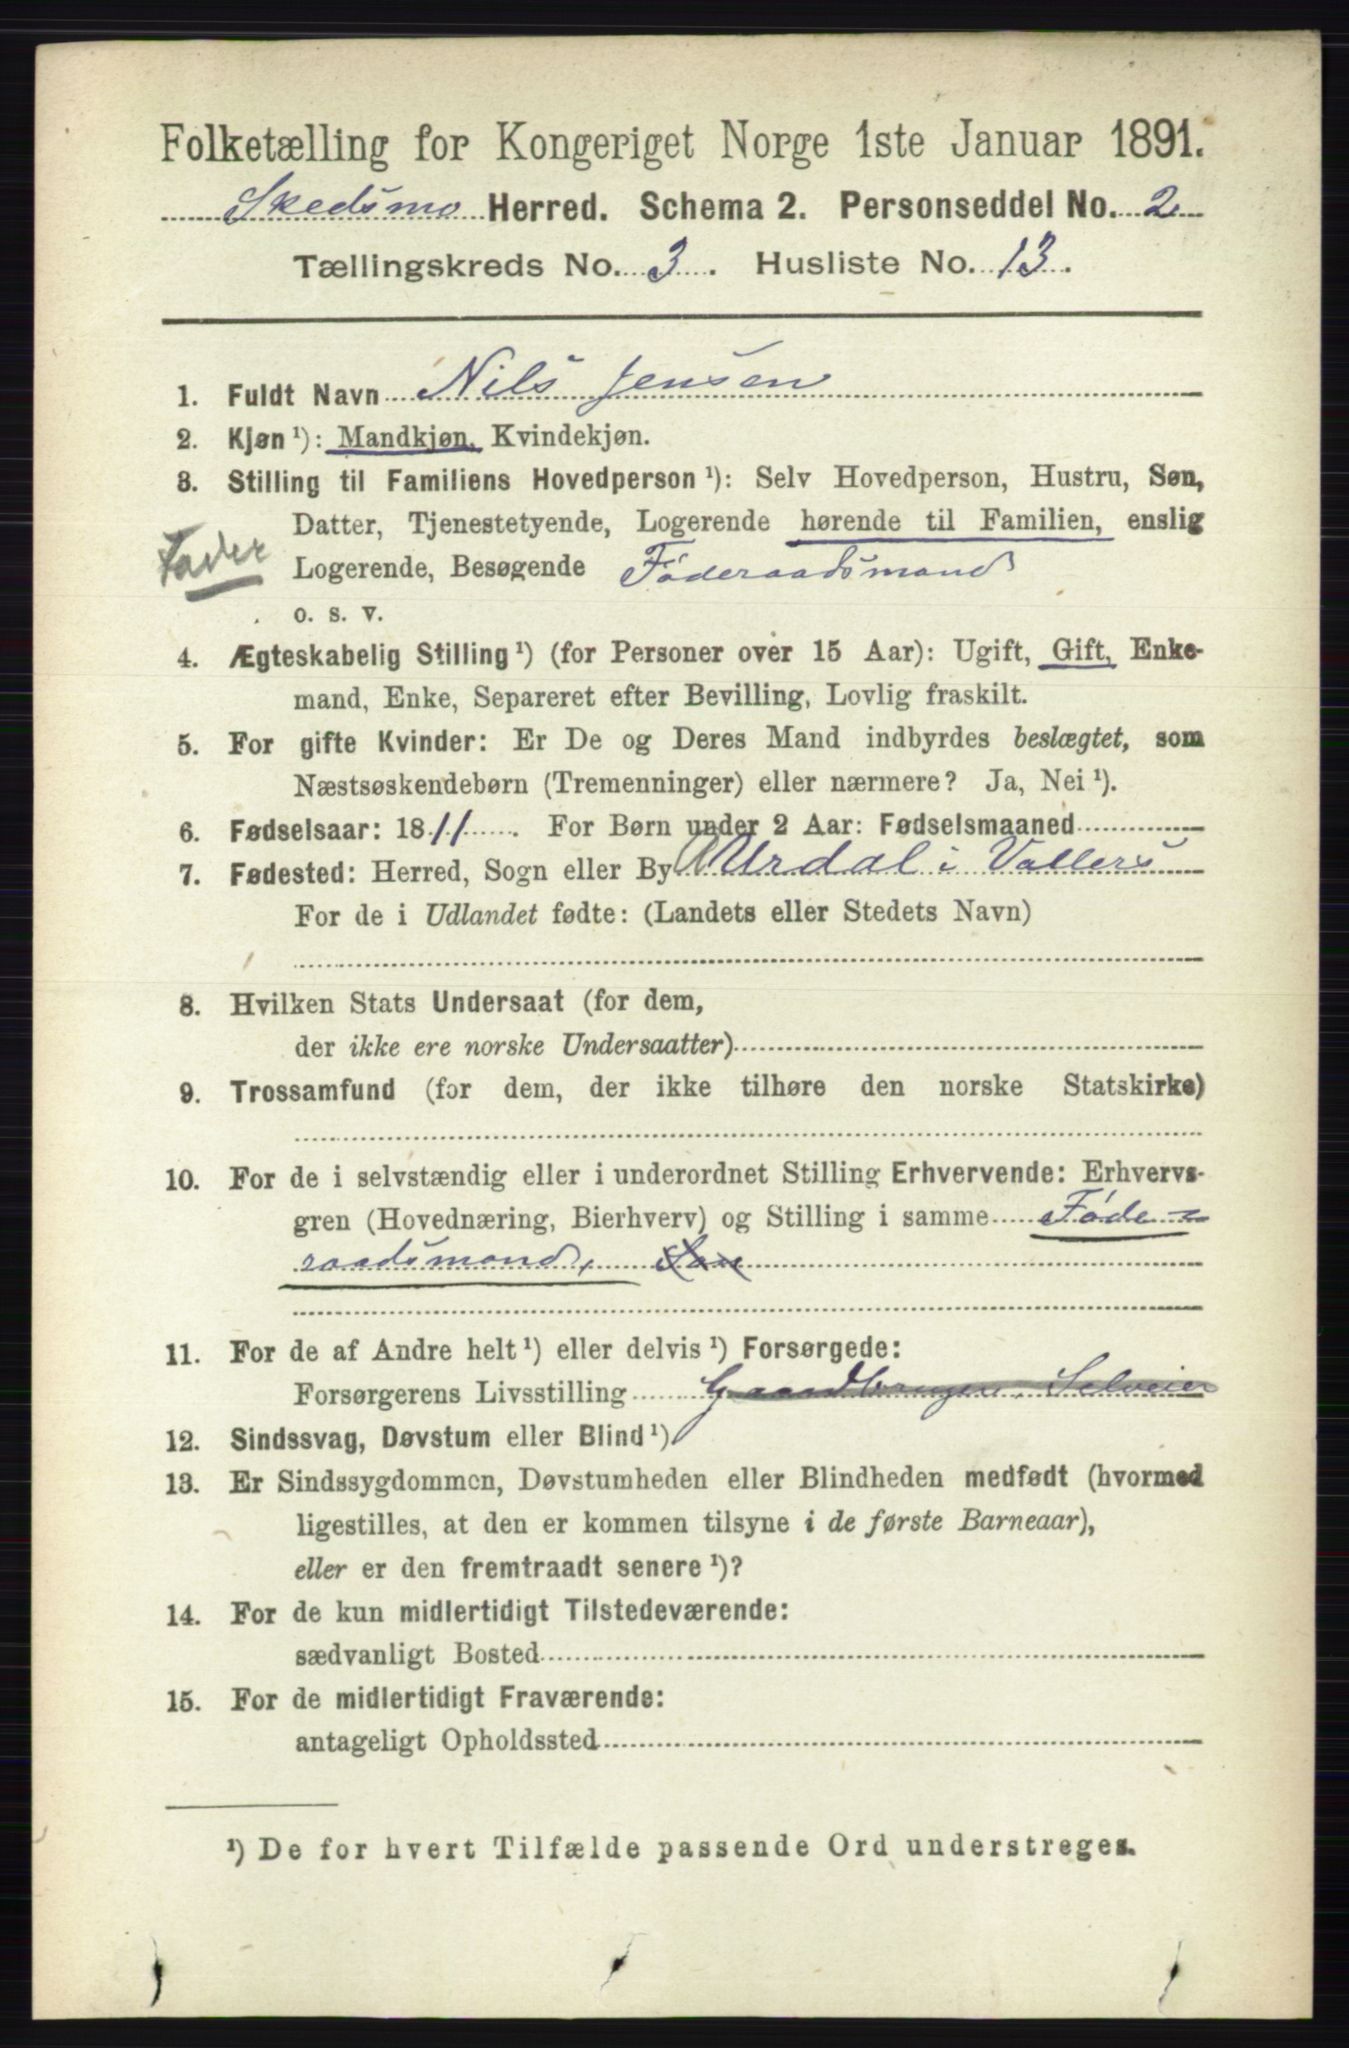 Folketælling for Kongeriget Norge 1ste Januar 1891.
Skedsmo Herred. Schema 2. Personseddel No. 2
Tællingskreds No. 3. Husliste No. 13.
1. Fuldt Navn Nils Jensen
2. Kjøn ¹): Mandkjøn, Kvindekjøn.
3. Stilling til Familiens Hovedperson ¹): Selv Hovedperson, Hustru, Søn,
Datter, Tjenestetyende, Logerende hørende til Familien, enslig
Fader Logerende, Besøgende Föderaadsmand
o. s. v.
4. Ægteskabelig Stilling ¹) (for Personer over 15 Aar): Ugift, Gift, Enke-
mand, Enke, Separeret efter Bevilling, Lovlig fraskilt.
5. For gifte Kvinder: Er De og Deres Mand indbyrdes beslægtet, som
Næstsøskendebørn (Tremenninger) eller nærmere? Ja, Nei ¹).
6. Fødselsaar: 1811. For Børn under 2 Aar: Fødselsmaaned
7. Fødested: Herred, Sogn eller By Aurdal i Vallers
For de i Udlandet fødte: (Landets eller Stedets Navn)
8. Hvilken Stats Undersaat (for dem,
der ikke ere norske Undersaatter)
9. Trossamfund (for dem, der ikke tilhøre den norske Statskirke)
10. For de i selvstændig eller i underordnet Stilling Erhvervende: Erhvervs-
gren (Hovednæring, Bierhverv) og Stilling i samme Föde-
raadsmand,
11. For de af Andre helt ¹) eller delvis ¹) Forsørgede:
Forsørgerens Livsstilling Gaardbruger, Selveier
12. Sindssvag, Døvstum eller Blind ¹)
13. Er Sindssygdommen, Døvstumheden eller Blindheden medfødt (hvormed
ligestilles, at den er kommen tilsyne i de første Barneaar),
eller er den fremtraadt senere ¹)?
14. For de kun midlertidigt Tilstedeværende:
sædvanligt Bosted
15. For de midlertidigt Fraværende:
antageligt Opholdssted
¹) De for hvert Tilfælde passende Ord understreges.